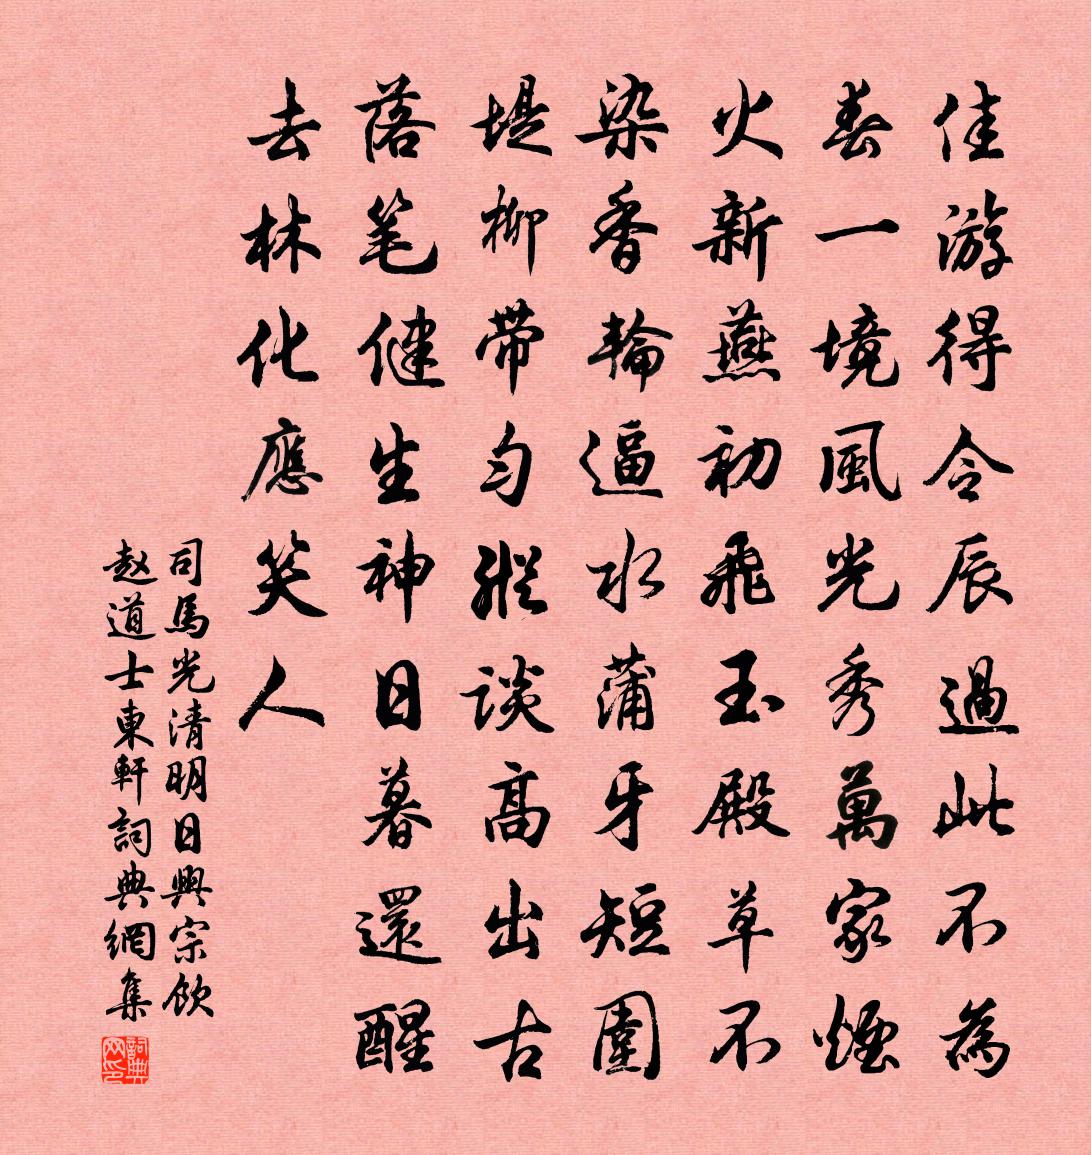 佳游得令辰過此不為
春一境風光秀萬家煙
火新燕初飛玉殿草不
染香輪逼水蒲牙短圍
堤柳带匀縱談高出古
落笔健生神日暮還醒
去林化應笑人
司馬光清明日興宗飲
赵道士東軒詞典網集
詞典网印